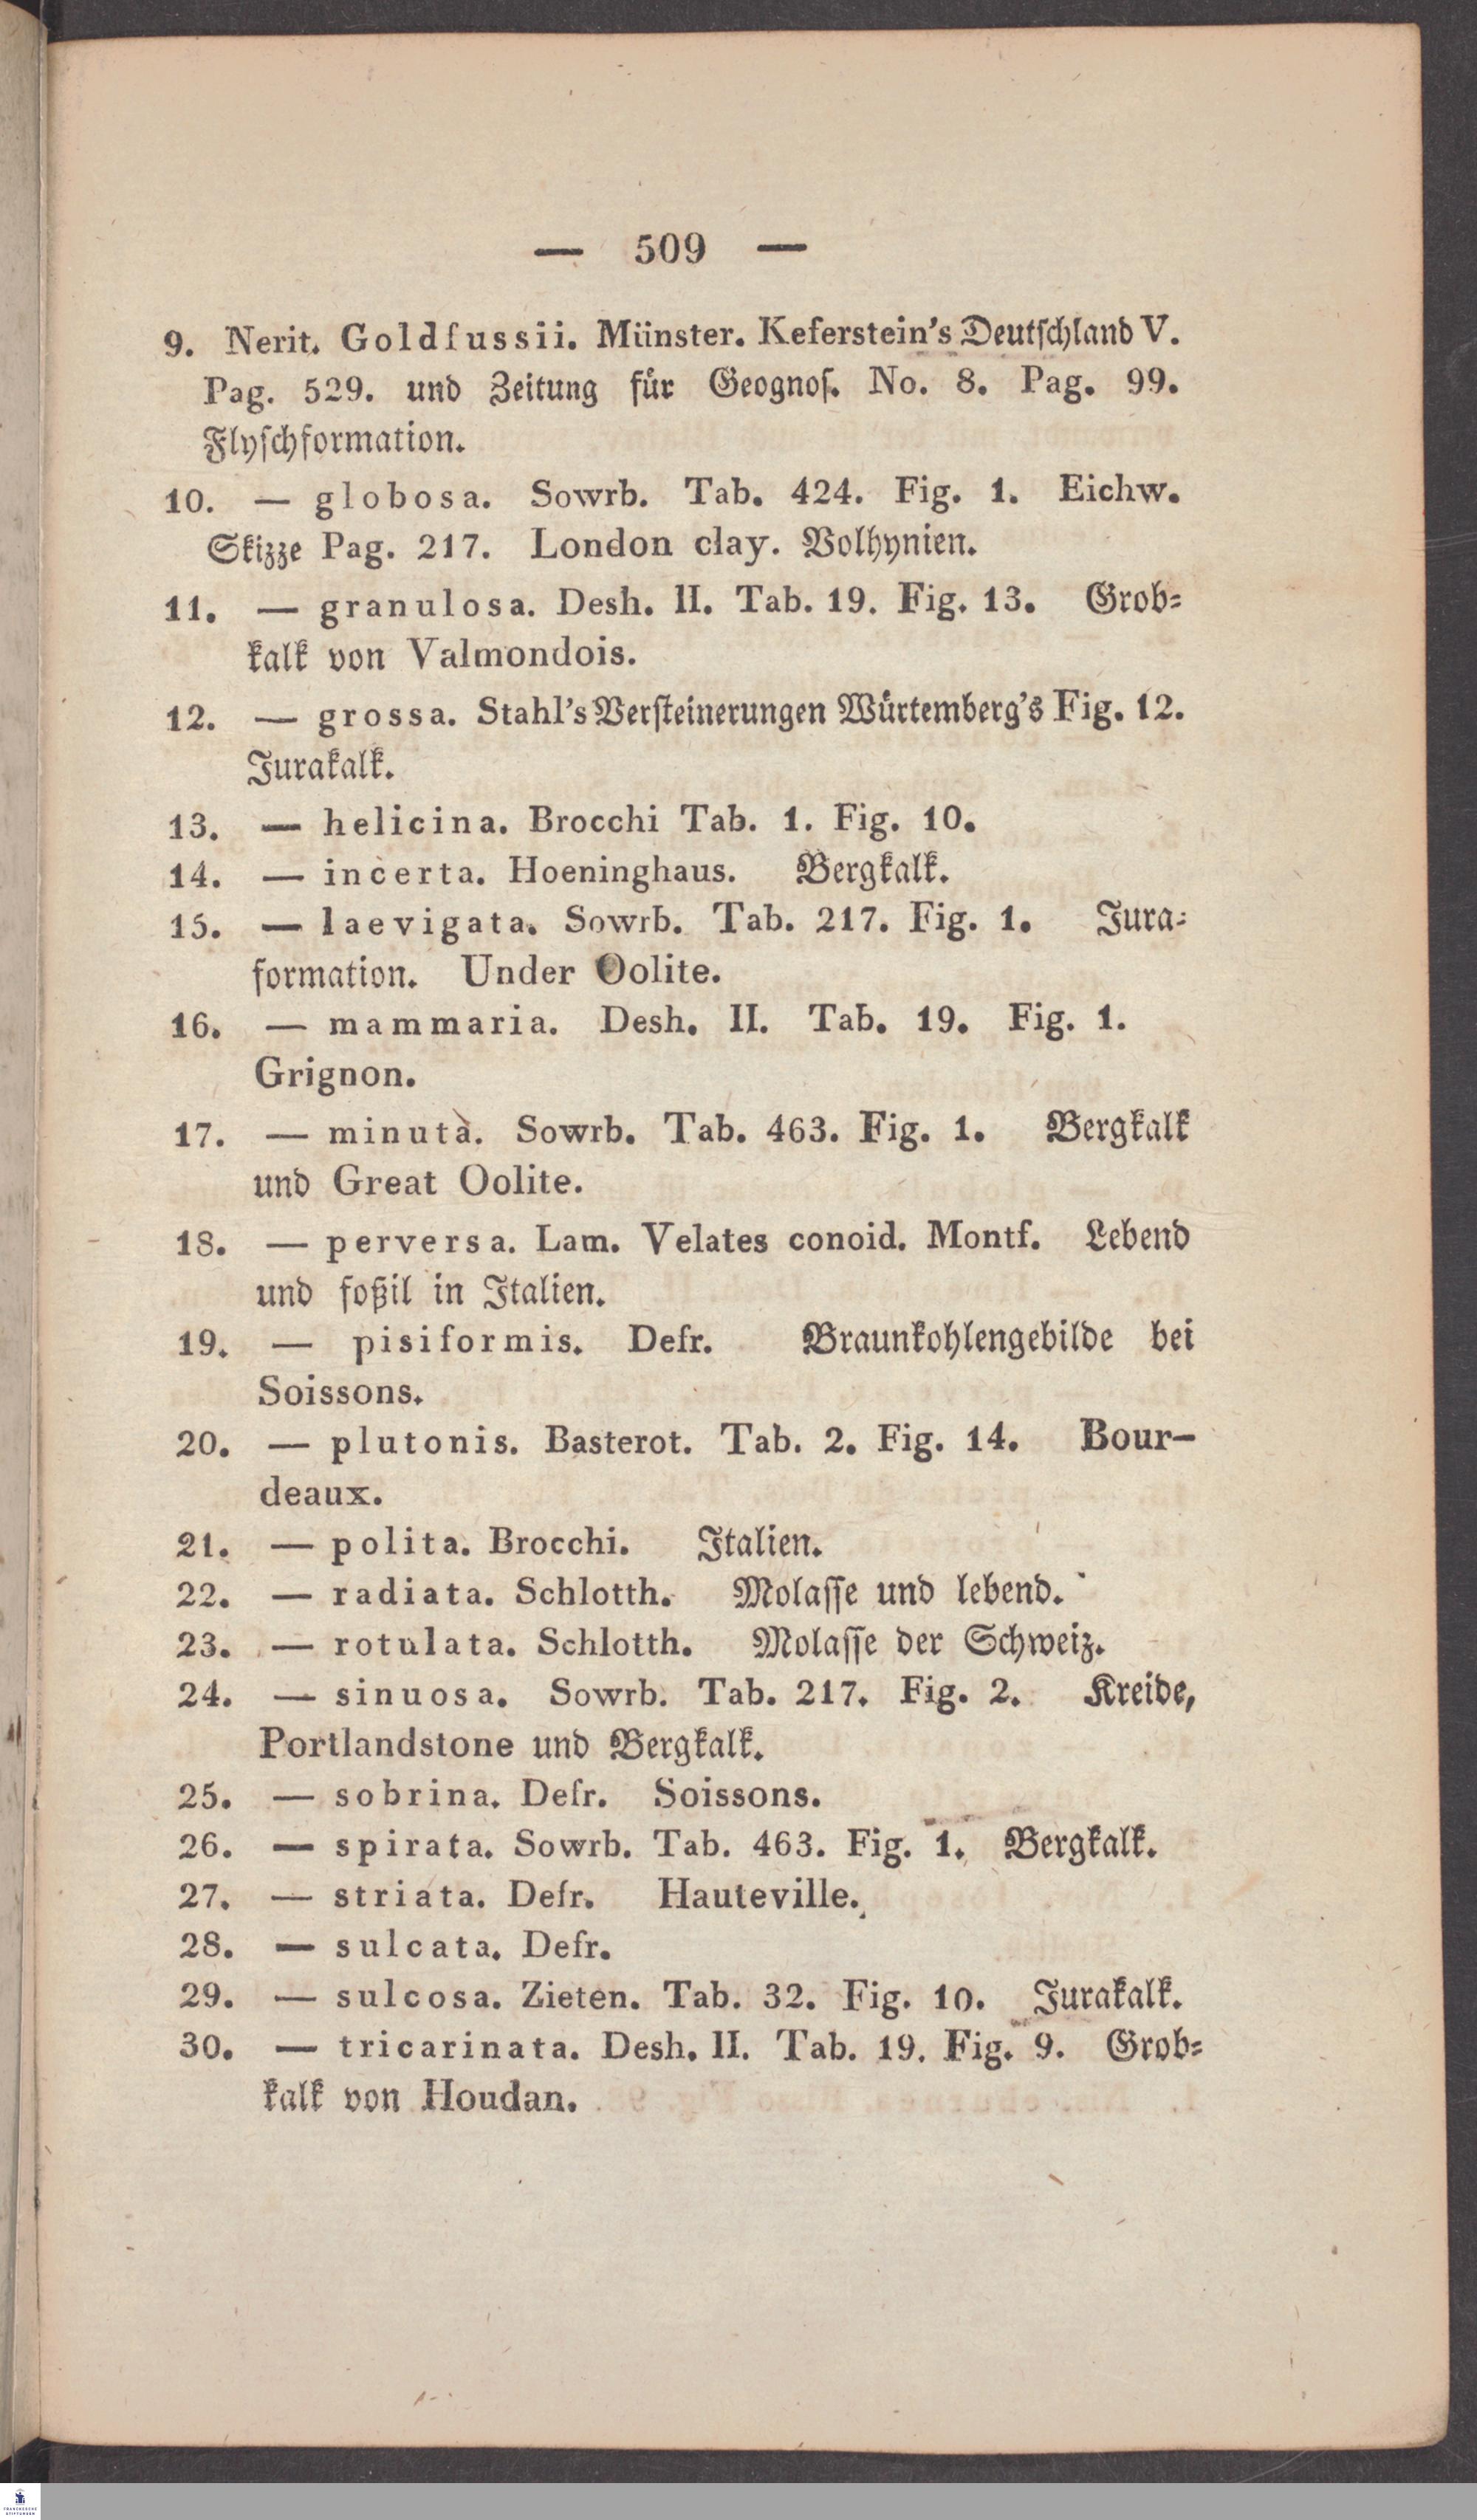 — 509 —
9. Nerit. Goldfussii. Münster. Keferstein's Deutſchland V.
Pag. 529. und Zeitung für Geognoſ. No. 8. Pag. 99.
Flyſchformation.
10. — globosa. Sowrb. Tab. 424. Fig. 1. Eichw.
Skizze Pag. 217. London clay. Volhynien.
11. — granulosa. Desh. II. Tab. 19. Fig. 13. Grob-
kalk von Valmondois.
12. — grossa. Stahl's Verſteinerungen Würtemberg's Fig. 12.
Jurakalk.
13. — helicina. Brocchi Tab. 1. Fig. 10.
14. — incerta. Hoeninghaus. Bergkalk.
15. — laevigata. Sowrb. Tab. 217. Fig. 1. Jura-
formation. Under Oolite.
16. — mammaria. Desh. II. Tab. 19. Fig. 1.
Grignon.
17. — minuta. Sowrb. Tab. 463. Fig. 1. Bergkalk
und Great Oolite.
18. — perversa. Lam. Velates conoid. Montf. Lebend
und foßil in Italien.
19. — pisiformis. Defr. Braunkohlengebilde bei
Soissons.
20. — plutonis. Basterot. Tab. 2. Fig. 14. Bour-
deaux.
21. — polita. Brocchi. Italien.
22. — radiata. Schlotth. Molaſſe und lebend.
23. — rotulata. Schlotth. Molaſſe der Schweiz.
24. — sinuosa. Sowrb. Tab. 217. Fig. 2. Kreide,
Portlandstone und Bergkalk.
25. — sobrina. Defr. Soissons.
26. — spirata. Sowrb. Tab. 463. Fig. 1. Bergkalk.
27. — striata. Defr. Hauteville.
28. — sulcata. Defr.
29. — sulcosa. Zieten. Tab. 32. Fig. 10. Jurakalk.
30. — tricarinata. Desh. II. Tab. 19. Fig. 9. Grob-
kalk von Houdan.
FRANCKESCHE
STIFTUNGEN